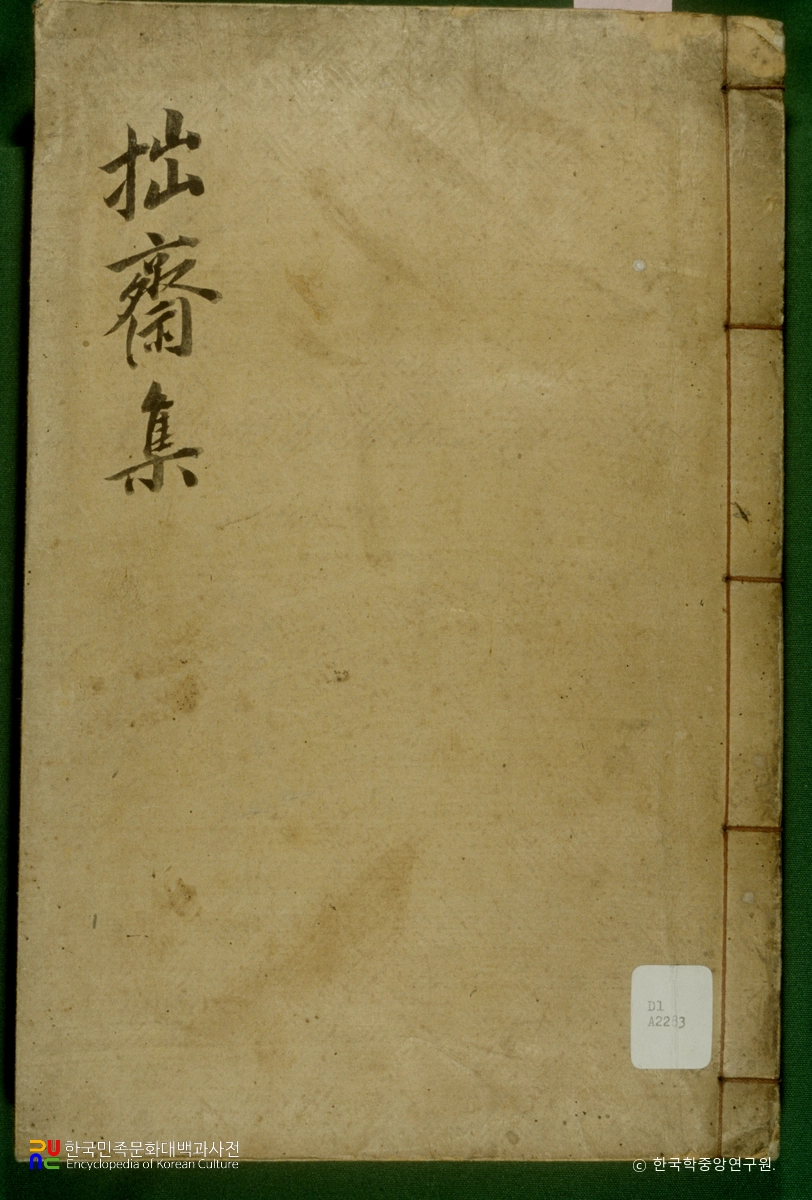 拙齋集
D1
A2283
한국민족문화대백과사전
Encyclopedia of Korean Culture
© 한국학중앙연구원.